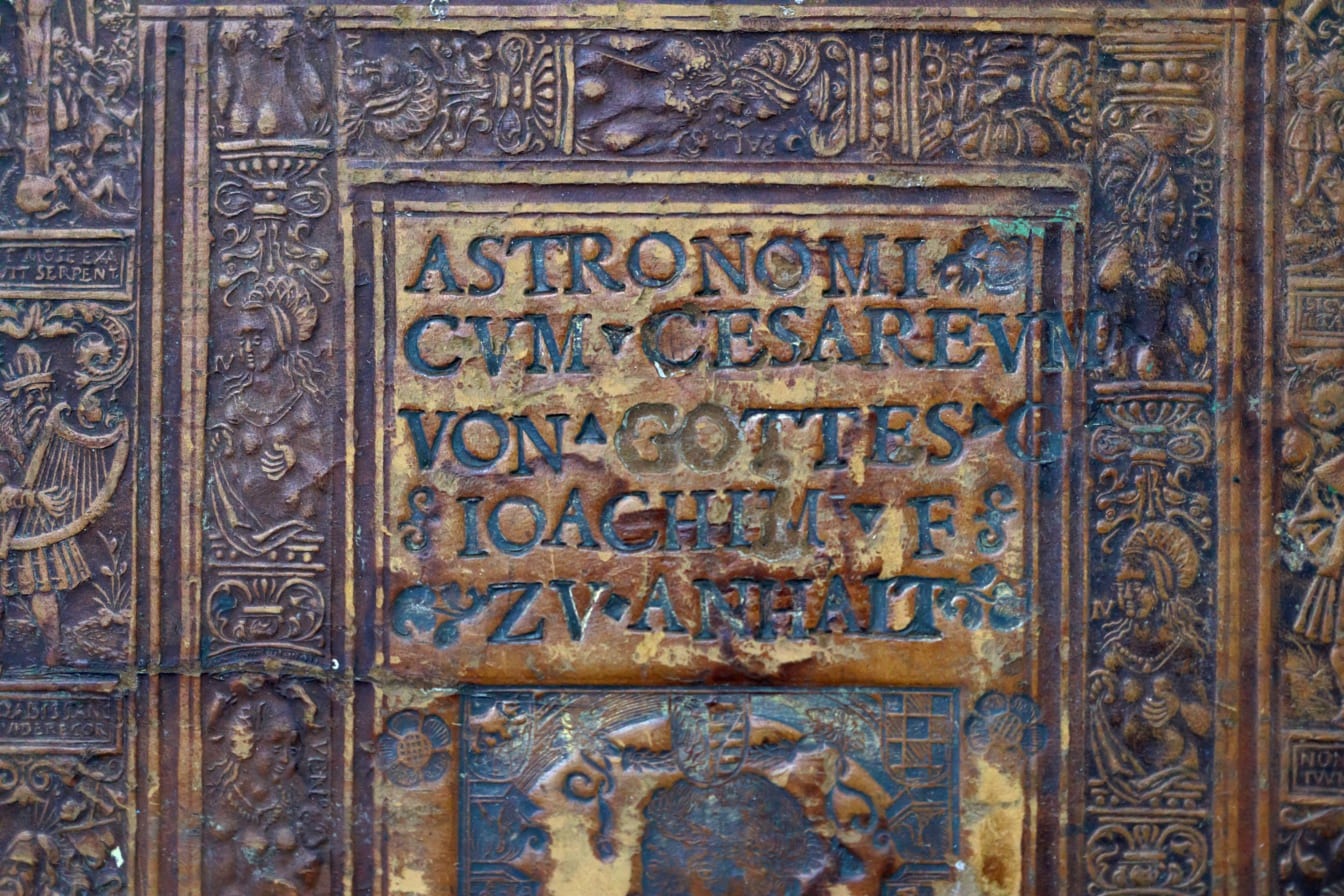 ASTRONOMI
CVM ▾ CESAREVM
VON ▴ GOTTES ▴ G
IOACHIM ▾ F
ZV ◆ ANHALT
MOSE EXA
VIT SERPENT.
PAL
PAL
VENP